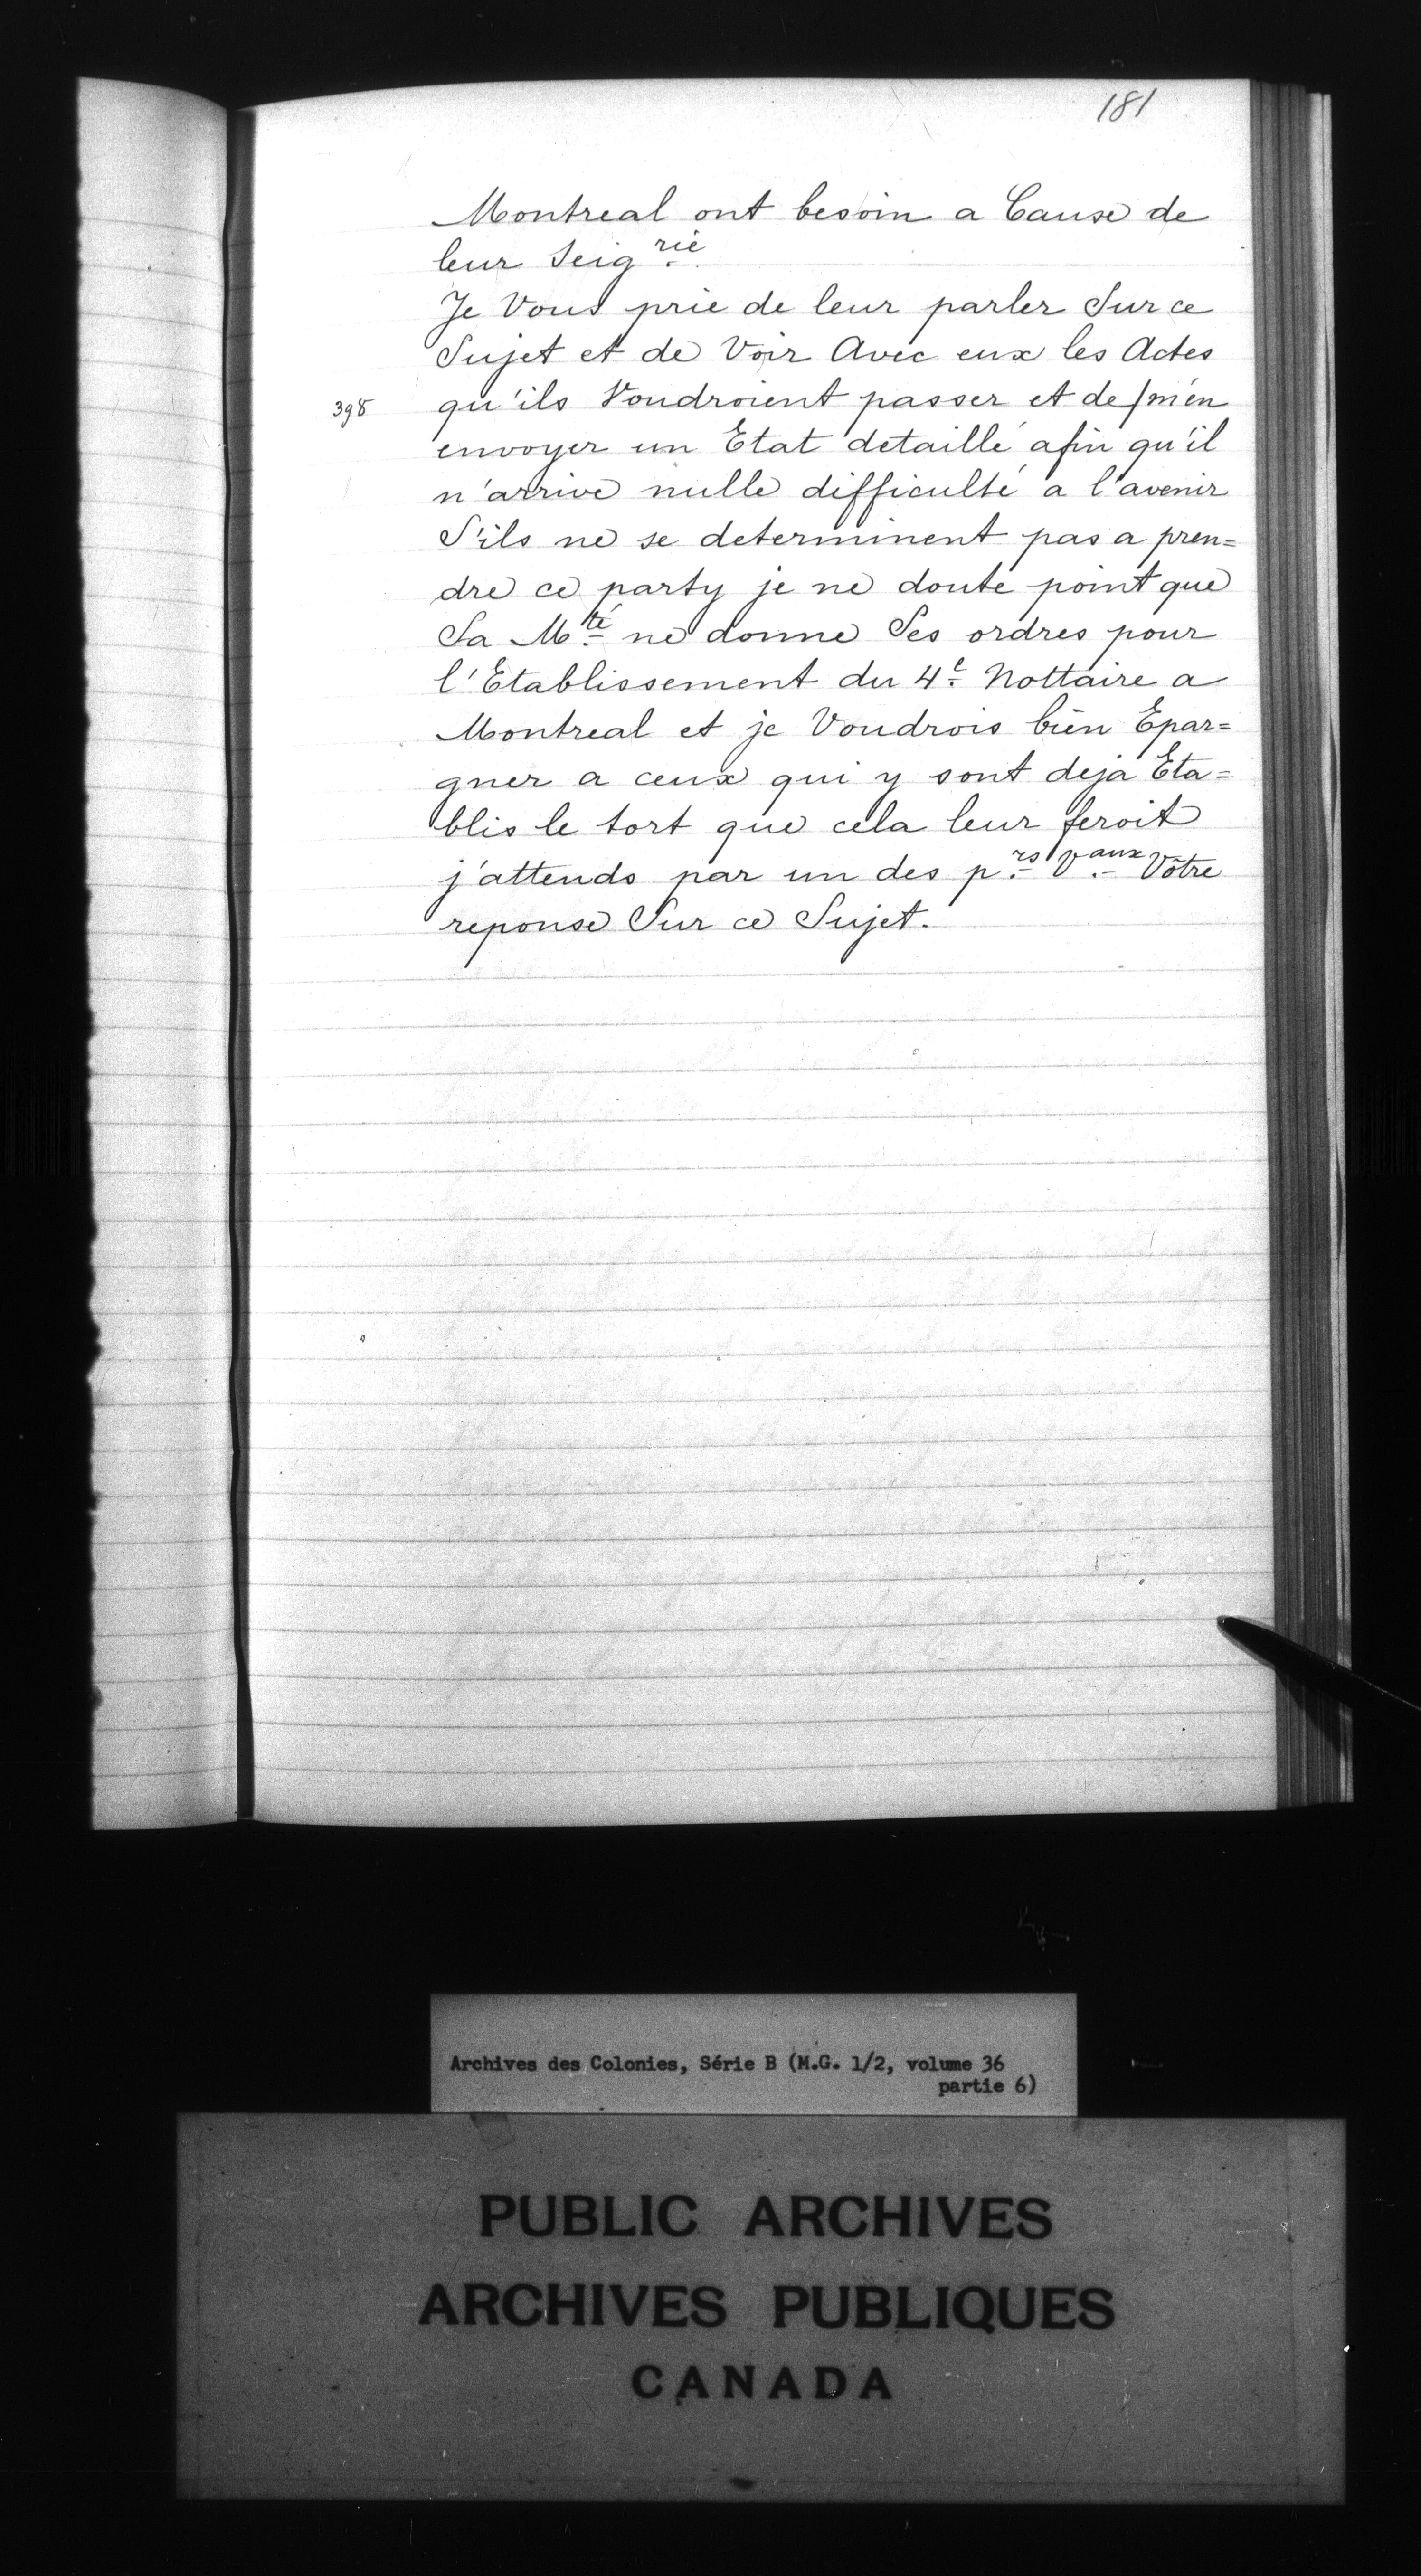 181
Montreal ont besoin a Cause de
leur Seig.rie
Je Vous prie de leur parler Sur ce
Sujet et de Voir Avec eux les Actes
398 qu'ils Voudroient passer et de/m'en
envoyer un Etat detaillé afin qu'il
n'arrive nulle difficulté a l'avenir
S'ils ne se determinent pas a pren=
dre ce party je ne doute point que
Sa M.té ne donne Ses ordres pour
l'Etablissement du 4.e Nottaire a
Montreal et je Voudrois bien Epar=
gner a ceux qui y sont deja Eta=
blis le tort que cela leur feroit
j'attends par un des p.rs V.aux Vôtre
reponse Sur ce Sujet.
Archives des Colonies, Série B (M.G. 1/2, volume 36
partie 6)
PUBLIC ARCHIVES
ARCHIVES PUBLIQUES
CANADA